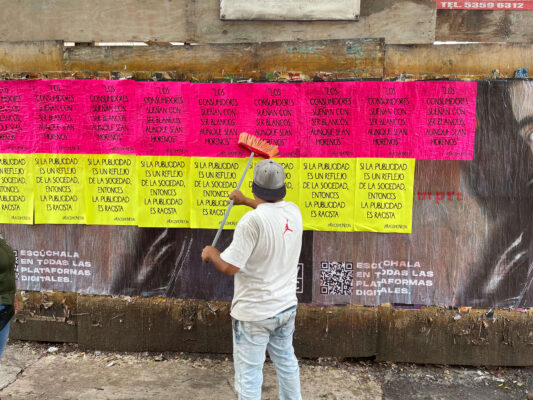 TEL. 5359 6312
"LOS
CONSUMIDORES
SUEÑAN CON
SER BLANCOS
AUNQUE SEAN
MORENOS"
"LOS
CONSUMIDORES
SUEÑAN CON
SER BLANCOS
AUNQUE SEAN
MORENOS"
"LOS
CONSUMIDORES
SUEÑAN CON
SER BLANCOS
AUNQUE SEAN
MORENOS"
"LOS
CONSUMIDORES
SUEÑAN CON
SER BLANCOS
AUNQUE SEAN
MORENOS"
"LOS
CONSUMIDORES
SUEÑAN CON
SER BLANCOS
AUNQUE SEAN
MORENOS"
"LOS
CONSUMIDORES
SUEÑAN CON
SER BLANCOS
AUNQUE SEAN
MORENOS"
"LOS
CONSUMIDORES
SUEÑAN CON
SER BLANCOS
AUNQUE SEAN
MORENOS"
"LOS
CONSUMIDORES
SUEÑAN CON
SER BLANCOS
AUNQUE SEAN
MORENOS"
PUBLICIDAD
REFLEJO
SOCIEDAD,
ENTONCES
PUBLICIDAD
RACISTA
SI LA PUBLICIDAD
ES UN REFLEJO
DE LA SOCIEDAD,
ENTONCES
LA PUBLICIDAD
ES RACISTA
SI LA PUBLICIDAD
ES UN REFLEJO
DE LA SOCIEDAD,
ENTONCES
LA PUBLICIDAD
ES RACISTA
SI LA PUBLICIDAD
ES UN REFLEJO
DE LA SOCIEDAD,
ENTONCES
LA PUBLICIDAD
ES RACISTA
SI LA PUBLICIDAD
ES UN REFLEJO
DE LA SOCIEDAD,
ENTONCES
LA PUBLICIDAD
ES RACISTA
SI LA PUBLICIDAD
ES UN REFLEJO
DE LA SOCIEDAD,
ENTONCES
LA PUBLICIDAD
ES RACISTA
SI LA PUBLICIDAD
ES UN REFLEJO
DE LA SOCIEDAD,
ENTONCES
LA PUBLICIDAD
ES RACISTA
ESCÚCHALA
EN TODAS LAS
PLATAFORMAS
DIGITALES.
ESCÚCHALA
EN TODAS LAS
PLATAFORMAS
DIGITALES.